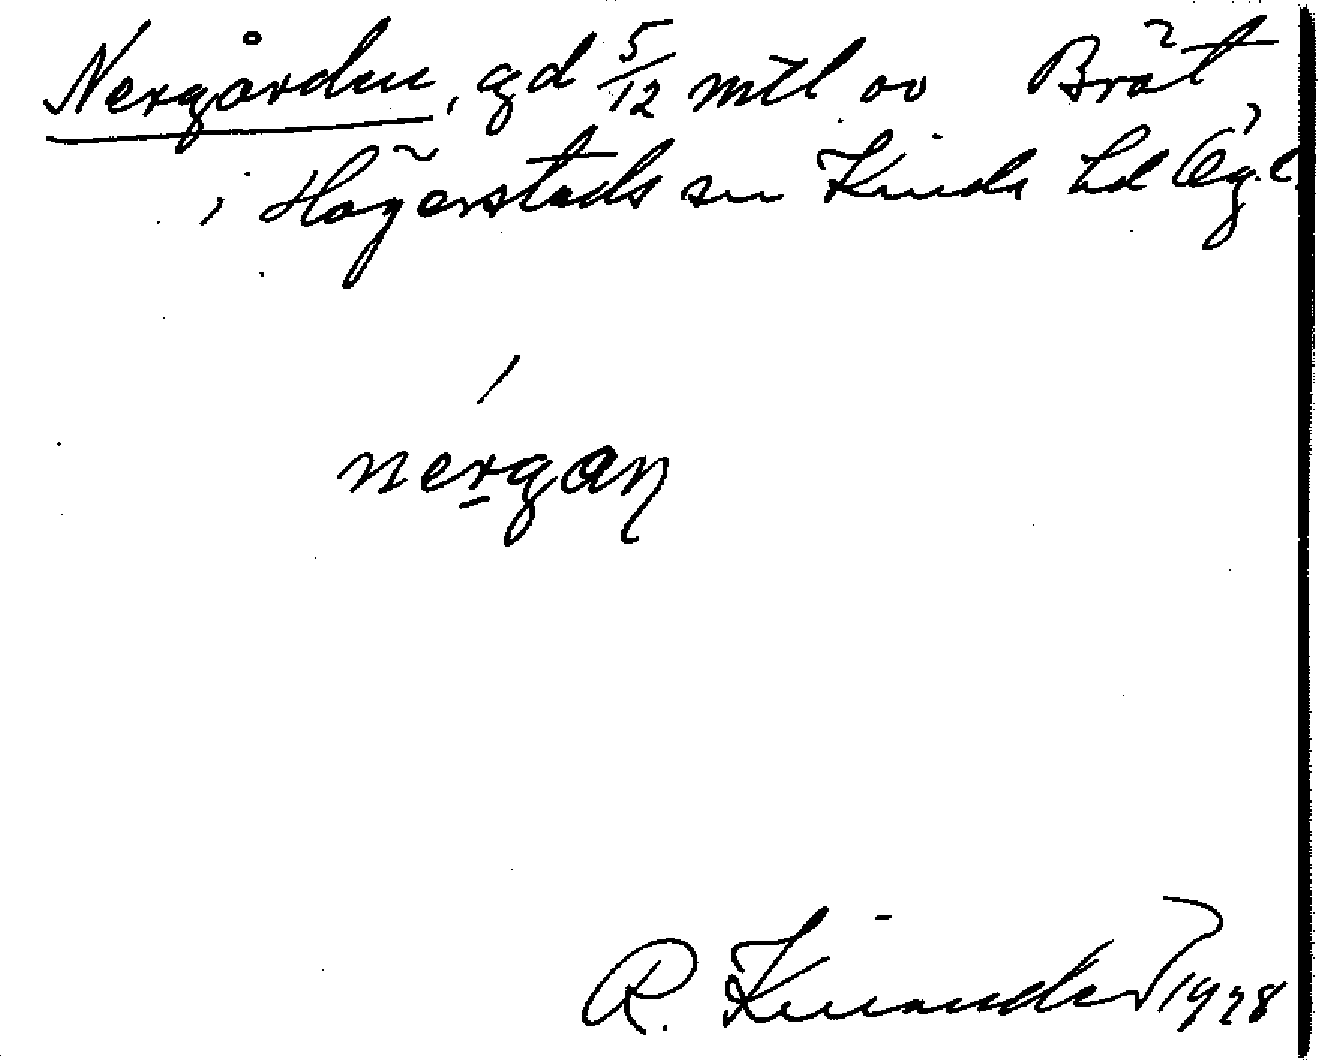 Nergården, gd 5/12 mtl oo Bråt
i Hägerstads sn Kinda hd Ög.l.
nergaɳ
R. Kinander 1928